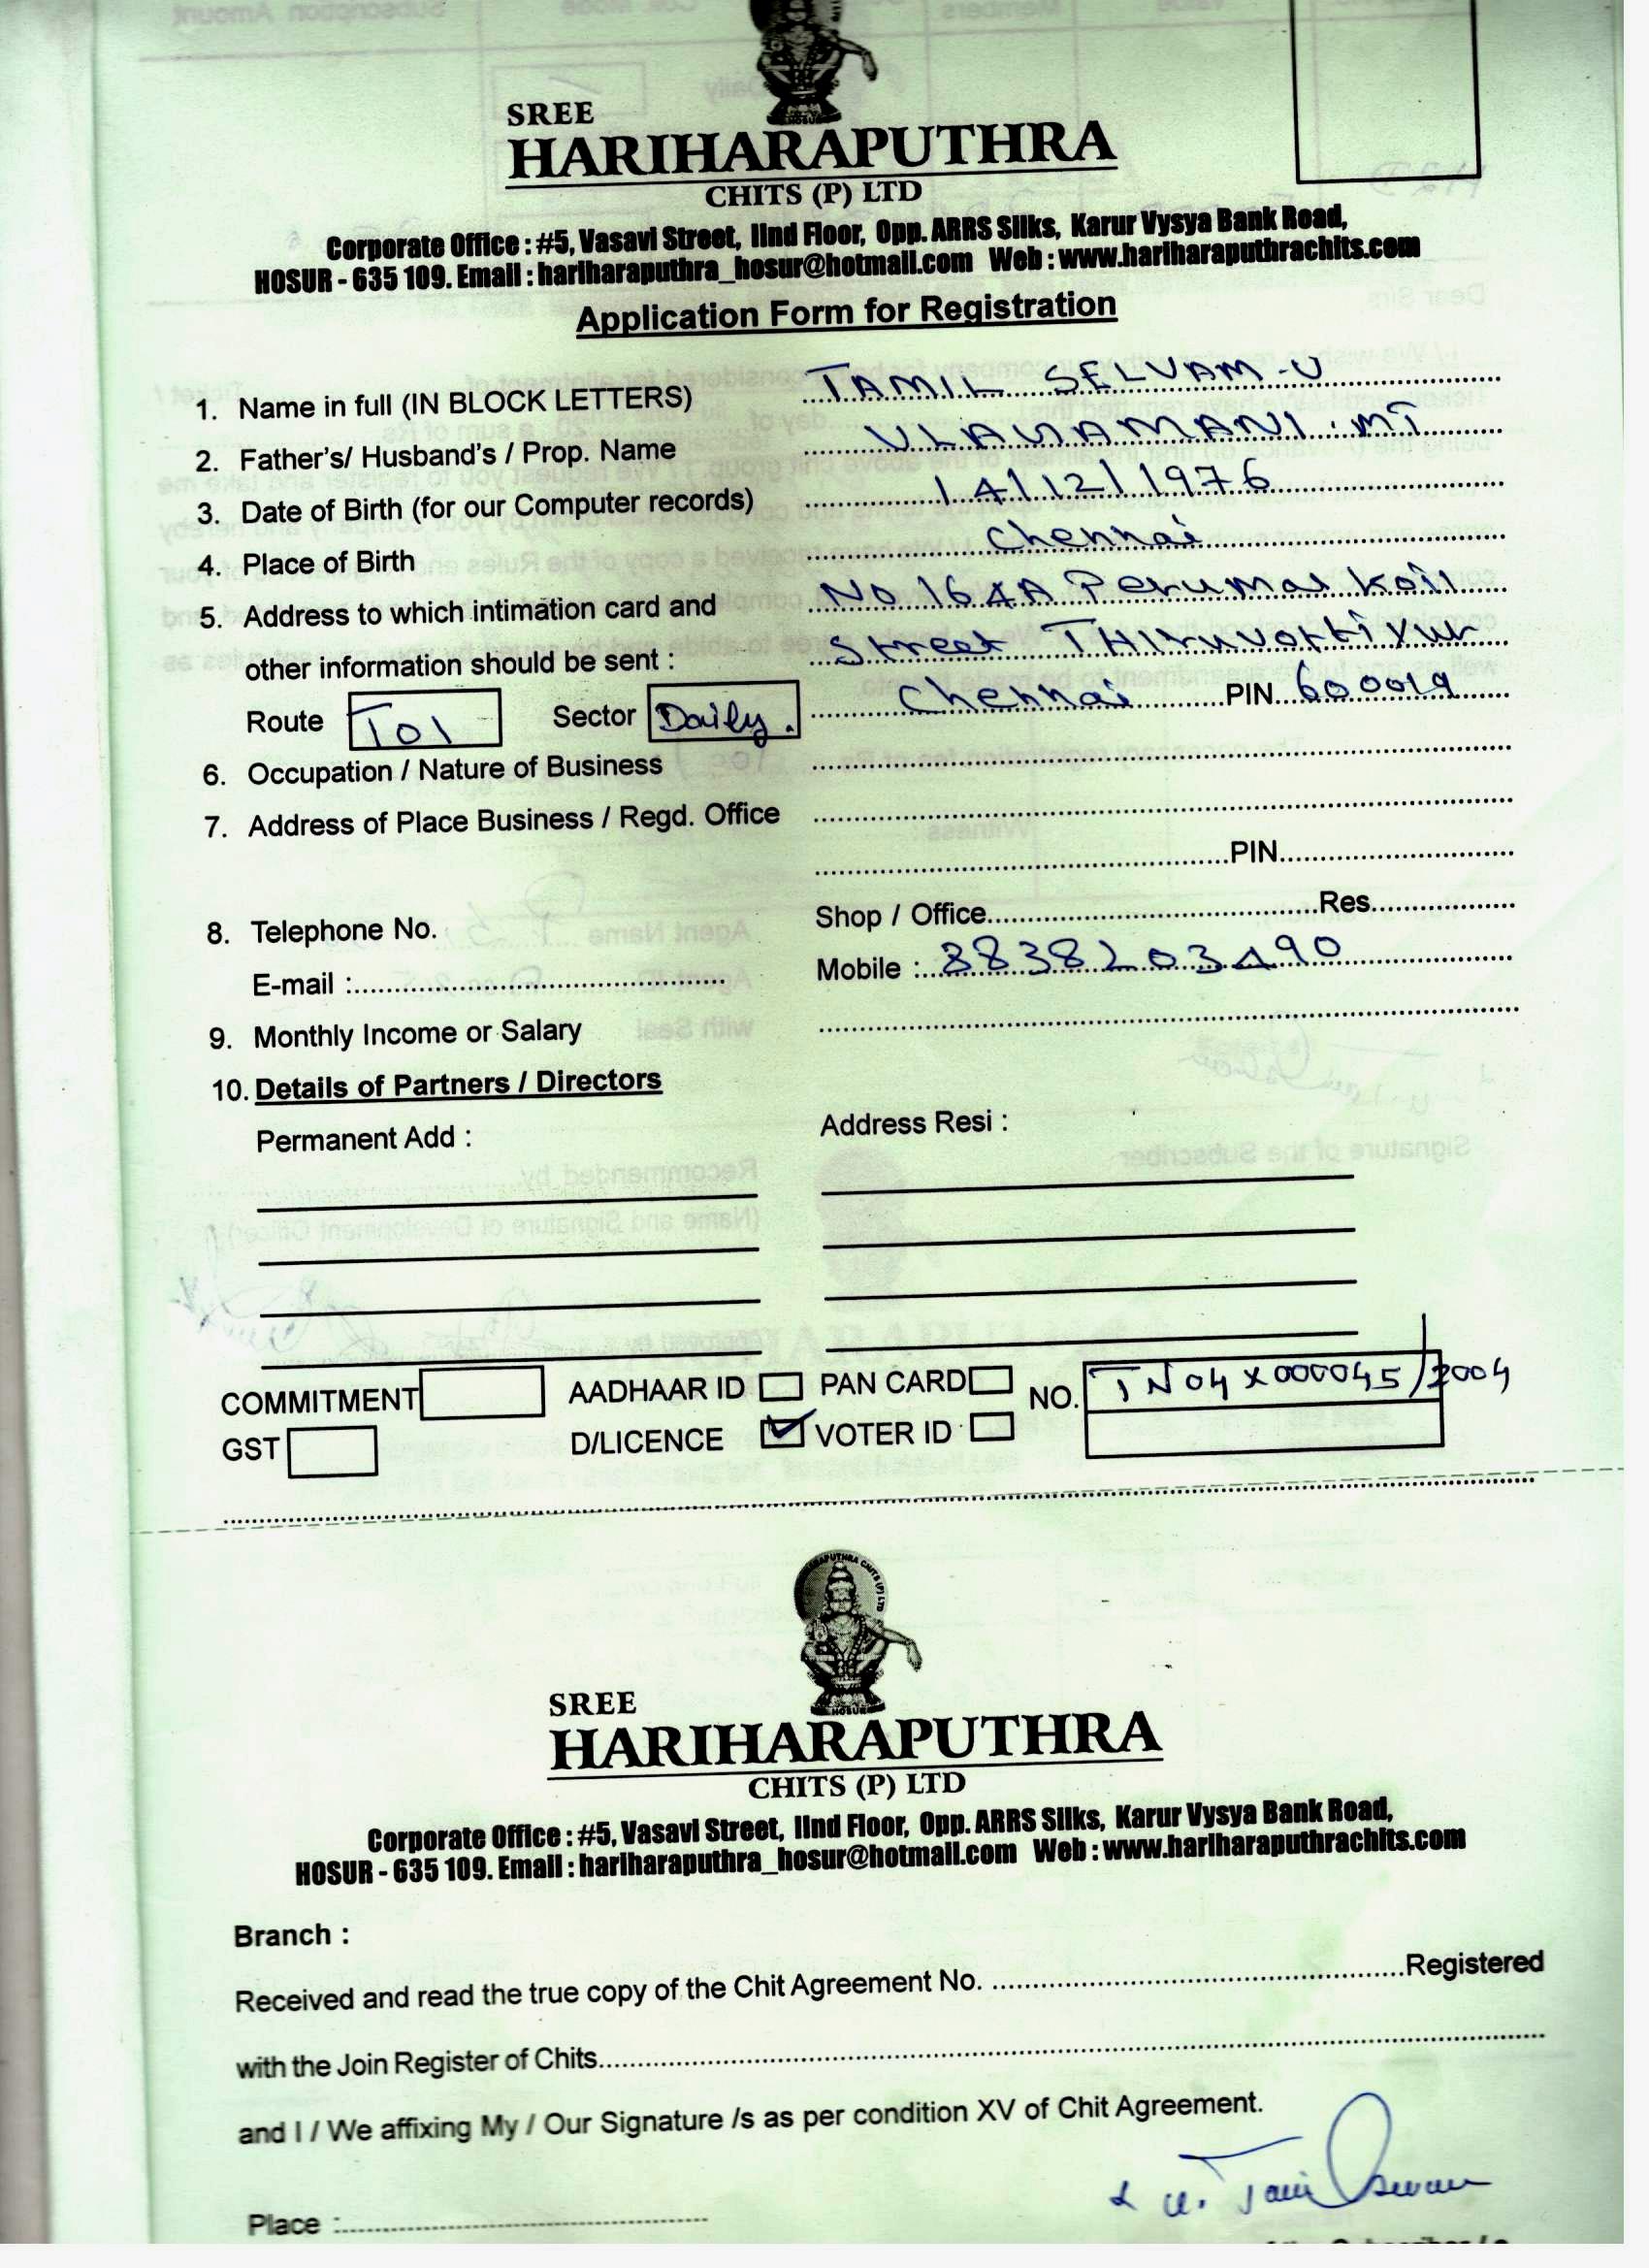 SREE
HARIHARAPUTHRA
CHITS (P) LTD
Corporate Office : #5, Vasavi Street, IInd Floor, Opp. ARRS Silks, Karur Vysya Bank Road,
HOSUR - 635 109. Email : hariharaputhra_hosur@hotmail.com Web : www.hariharaputhrachits.com
Application Form for Registration
1. Name in full (IN BLOCK LETTERS) TAMIL SELVAM-U
2. Father's/ Husband's / Prop. Name MT
3. Date of Birth (for our Computer records) 14/12/1976
4. Place of Birth Chennai
5. Address to which intimation card and No 164A Perumal Koil
other information should be sent : Street THIruvottiyur
Route T01 Sector Daily. Chennai PIN 600019
6. Occupation / Nature of Business
7. Address of Place Business / Regd. Office
PIN
8. Telephone No. Shop / Office Res
E-mail : Mobile : 8838203490
9. Monthly Income or Salary
10. Details of Partners / Directors
Permanent Add : Address Resi :
COMMITMENT AADHAAR ID PAN CARD NO. TN04X000045/2004
GST D/LICENCE VOTER ID
SREE
HARIHARAPUTHRA
CHITS (P) LTD
Corporate Office : #5, Vasavi Street, IInd Floor, Opp. ARRS Silks, Karur Vysya Bank Road,
HOSUR - 635 109. Email : hariharaputhra_hosur@hotmail.com Web : www.hariharaputhrachits.com
Branch :
Received and read the true copy of the Chit Agreement No. Registered
with the Join Register of Chits
and I / We affixing My / Our Signature /s as per condition XV of Chit Agreement.
Place :